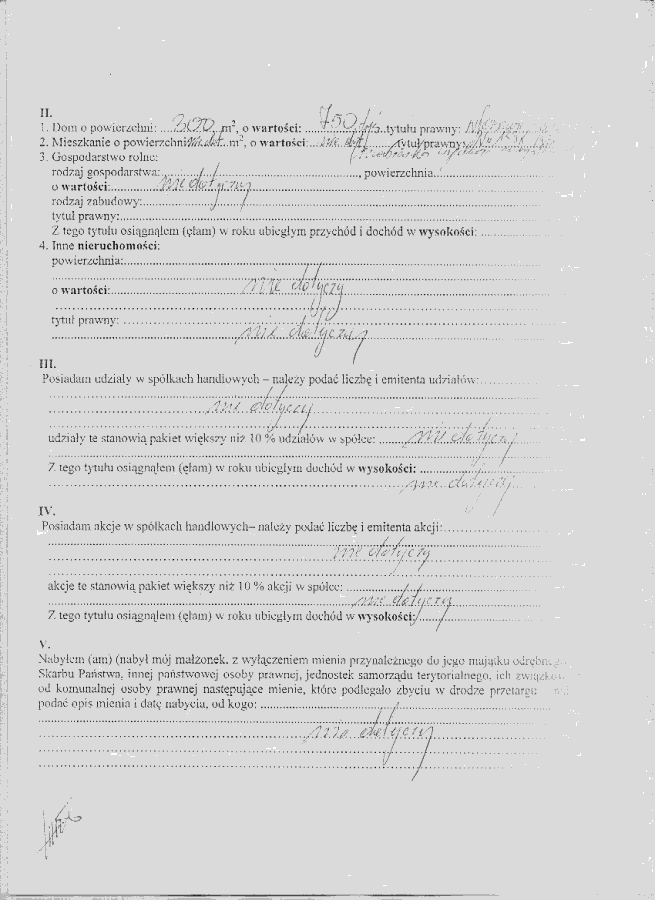 II.
1. Dom o powierzchni: ...300... m², o wartości: ...750 tyś... tytułu prawny:
2. Mieszkanie o powierzchni: nie dot... m², o wartości: ...nie dot... tytuł prawny:
3. Gospodarstwo rolne:
rodzaj gospodarstwa: ..., powierzchnia:
o wartości: nie dotyczy
rodzaj zabudowy:
tytuł prawny:
Z tego tytułu osiągnąłem (ęłam) w roku ubiegłym przychód i dochód w wysokości:
4. Inne nieruchomości:
powierzchnia:
o wartości: nie dotyczy
tytuł prawny:
nie dotyczy
III.
Posiadam udziały w spółkach handlowych – należy podać liczbę i emitenta udziałów:
nie dotyczy
udziały te stanowią pakiet większy niż 10 % udziałów w spółce: nie dotyczy
Z tego tytułu osiągnąłem (ęłam) w roku ubiegłym dochód w wysokości:
nie dotyczy
IV.
Posiadam akcje w spółkach handlowych– należy podać liczbę i emitenta akcji:
nie dotyczy
akcje te stanowią pakiet większy niż 10 % akcji w spółce:
nie dotyczy
Z tego tytułu osiągnąłem (ęłam) w roku ubiegłym dochód w wysokości:
V.
Nabyłem (am) (nabył mój małżonek, z wyłączeniem mienia przynależnego do jego majątku
Skarbu Państwa, innej państwowej osoby prawnej, jednostek samorządu terytorialnego, ich
od komunalnej osoby prawnej następujące mienie, które podlegało zbyciu w drodze przetargu
podać opis mienia i datę nabycia, od kogo:
nie dotyczy